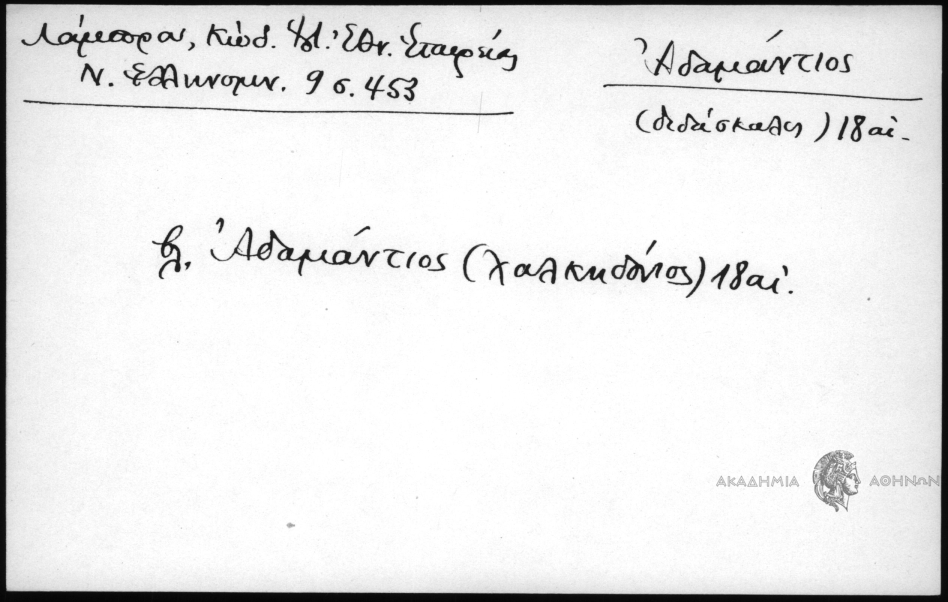 Λάμπρου, Κώδ. Ἱστ. Ἐθν. Ἑταιρείας
Ν. Ἑλληνομν. 9 σ. 453
Ἀδαμάντιος
(διδάσκαλος) 18 αἰ.
βλ. Ἀδαμάντιος (Χαλκηδόνιος) 18 αἰ.
ΑΚΑΔΗΜΙΑ ΑΘΗΝΩΝ